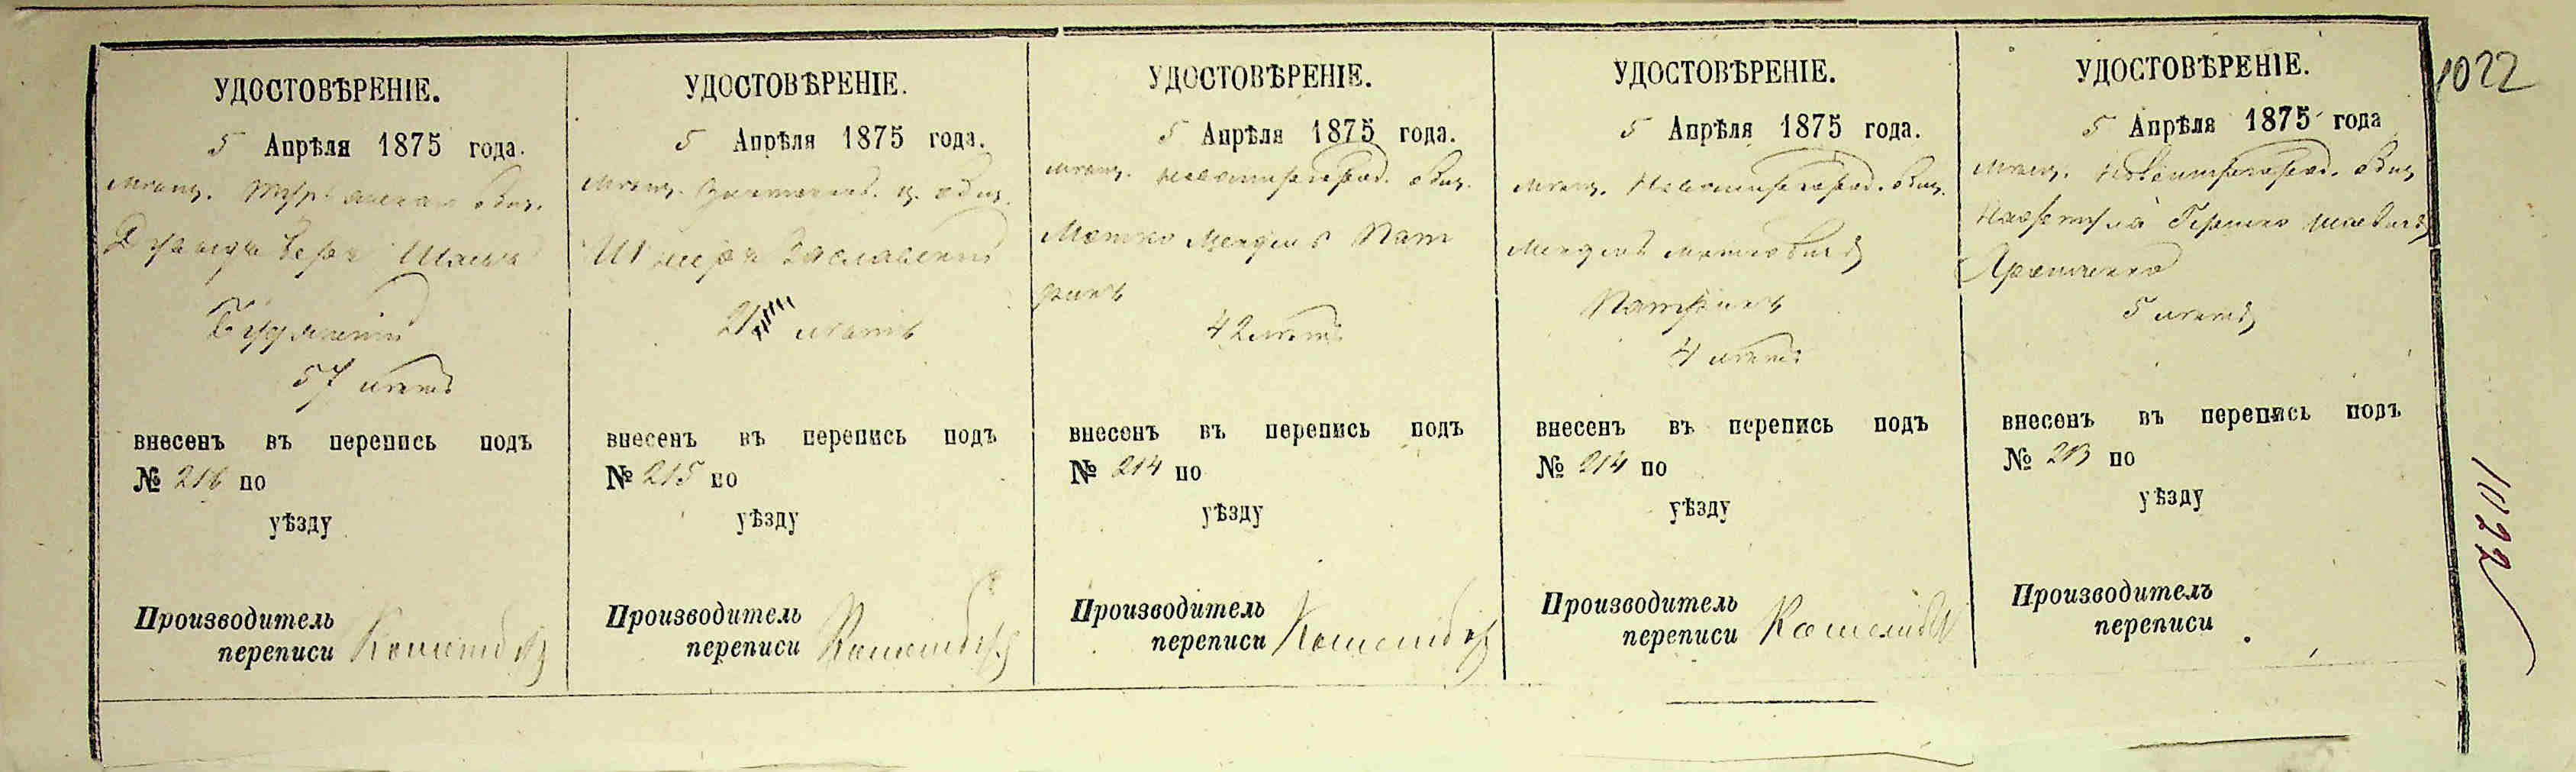 УДОСТОВѢРЕНІЕ.
5 Апрѣля 1875 года.
мѣщ. общ.
57 лѣтъ
внесенъ въ перепись подъ
№ 216 по
уѣзду
Производитель
переписи
УДОСТОВѢРЕНІЕ.
5 Апрѣля 1875 года.
мѣщ. общ.
Шмеръ Заславскій
21 лѣтъ
внесенъ въ перепись подъ
№ 215 по
уѣзду
Производитель
переписи
УДОСТОВѢРЕНІЕ.
5 Апрѣля 1875 года.
мѣщ. Новомиргород. общ.
Мошко Мендел
42 лѣтъ
внесенъ въ перепись подъ
№ 214 по
уѣзду
Производитель
переписи
УДОСТОВѢРЕНІЕ.
5 Апрѣля 1875 года.
мѣщ. Новомиргород. общ.
Мендель Мошковичъ
4 лѣтъ
внесенъ въ перепись подъ
№ 214 по
уѣзду
Производитель
переписи
УДОСТОВѢРЕНІЕ.
5 Апрѣля 1875 года
мѣщ. Новомиргород. общ.
Гершко
5 лѣтъ
внесенъ въ перепись подъ
№ 213 по
уѣзду
Производитель
переписи
1022
1022